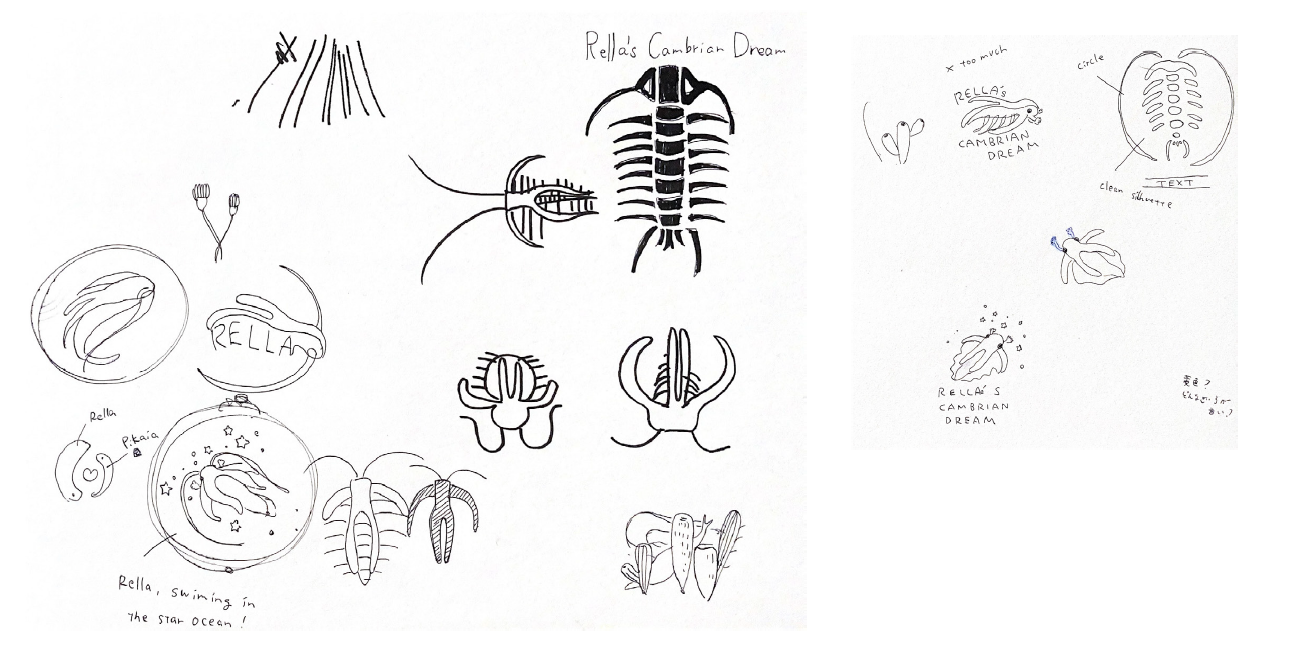 Rella's Cambrian Dream
RELLA
Rella
Pikaia
Rella, swiming in
the star ocean!
× too much
RELLA's
CAMBRIAN
DREAM
circle
clean silhuette
TEXT
RELLA'S
CAMBRIAN
DREAM
黄色?